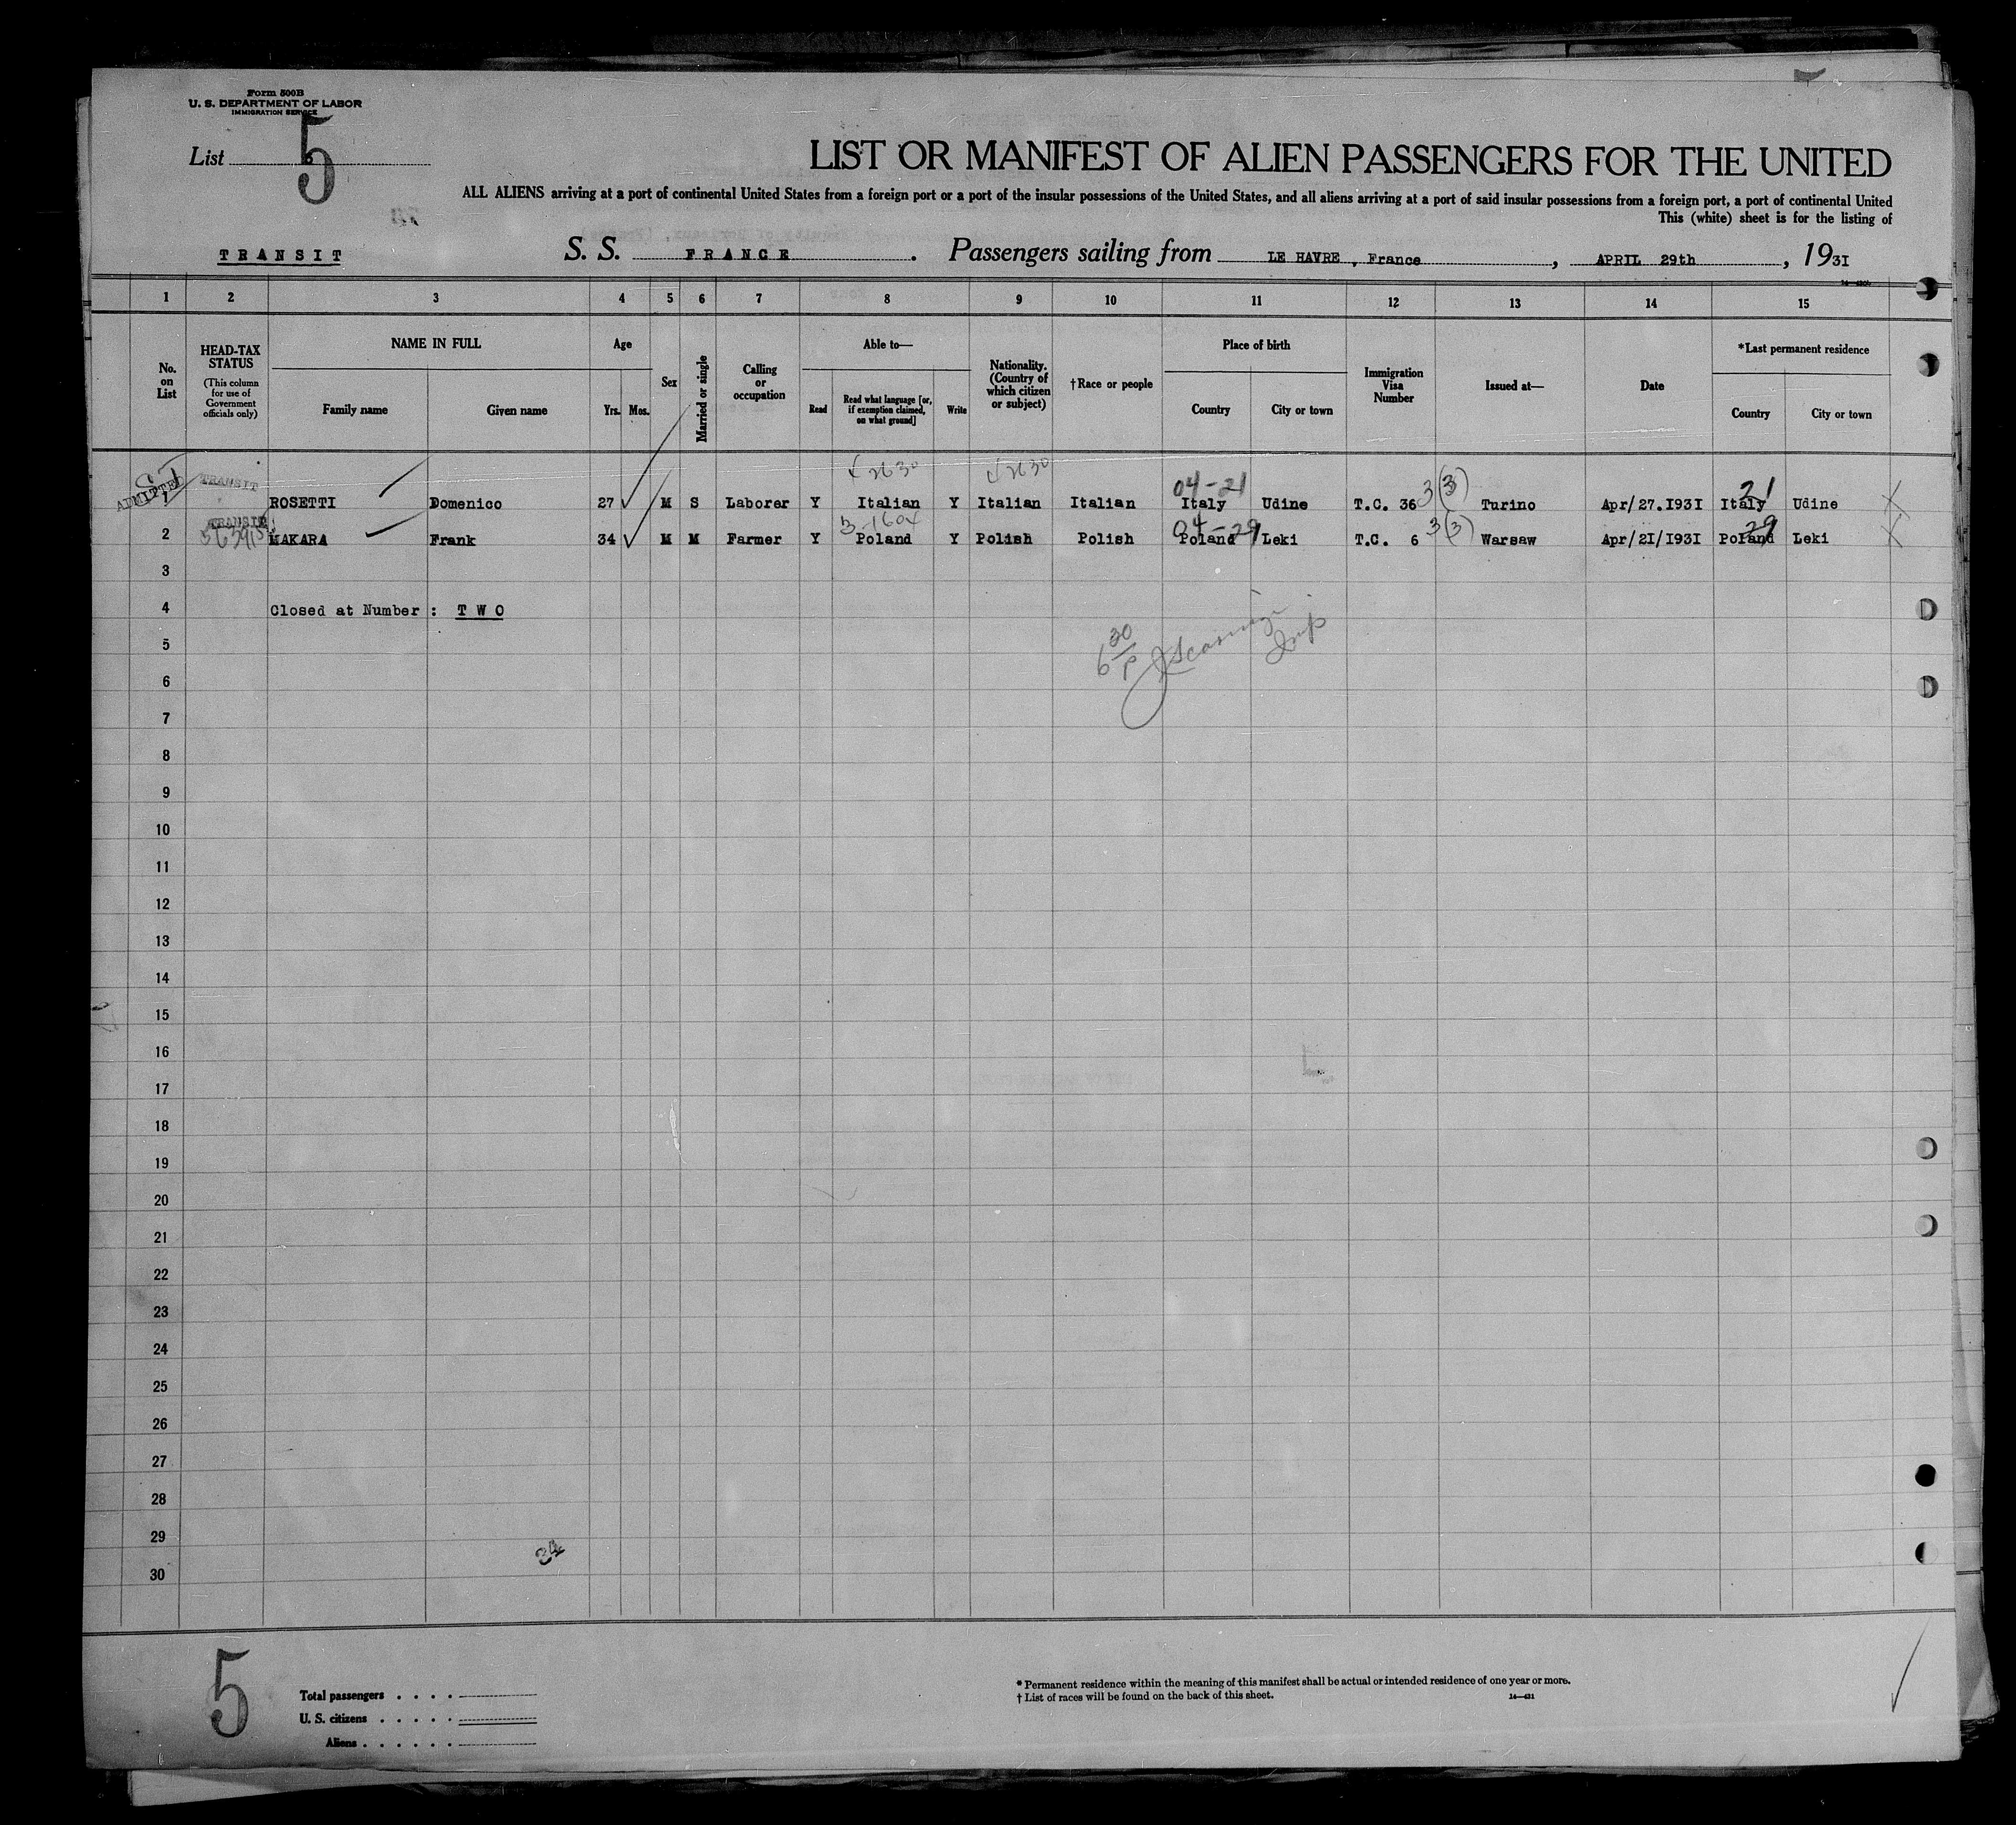 Form 500B
U. S. DEPARTMENT OF LABOR
IMMIGRATION SERVICE
List 5
LIST OR MANIFEST OF ALIEN PASSENGERS FOR THE UNITED
ALL ALIENS arriving at a port of continental United States from a foreign port or a port of the insular possessions of the United States, and all aliens arriving at a port of said insular possessions from a foreign port, a port of continental United
This (white) sheet is for the listing of
TRANSIT S. S. FRANCE. Passengers sailing from LE HAVRE, France, APRIL 29th, 1931
1 2 3 4 5 6 7 8 9 10 11 12 13 14 15
No. on List
HEAD-TAX STATUS (This column for use of Government officials only)
NAME IN FULL
Family name Given name
Age
Yrs. Mos.
Sex
Married or single
Calling or occupation
Able to—
Read
Read what language [or, if exemption claimed, on what ground]
Write
Nationality. (Country of which citizen or subject)
†Race or people
Place of birth
Country City or town
Immigration Visa Number
Issued at—
Date
*Last permanent residence
Country City or town
2630 2630 04-21 3(3) 21
ADMITTED TRANSIT ROSETTI Domenico 27 M S Laborer Y Italian Y Italian Italian Italy Udine T.C. 36 Turino Apr/27.1931 Italy Udine
TRANSIT 3-1604 04-29 3(3) 29
2 MAKARA Frank 34 M M Farmer Y Poland Y Polish Polish Poland Leki T.C. 6 Warsaw Apr/21/1931 Poland Leki
3
4 Closed at Number : TWO
5
6 30/P
Insp
6
7
8
9
10
11
12
13
14
15
16
17
18
19
20
21
22
23
24
25
26
27
28
29
24
30
5
Total passengers . . . .
U. S. citizens . . . . .
Aliens . . . . . .
* Permanent residence within the meaning of this manifest shall be actual or intended residence of one year or more.
† List of races will be found on the back of this sheet.
14—431